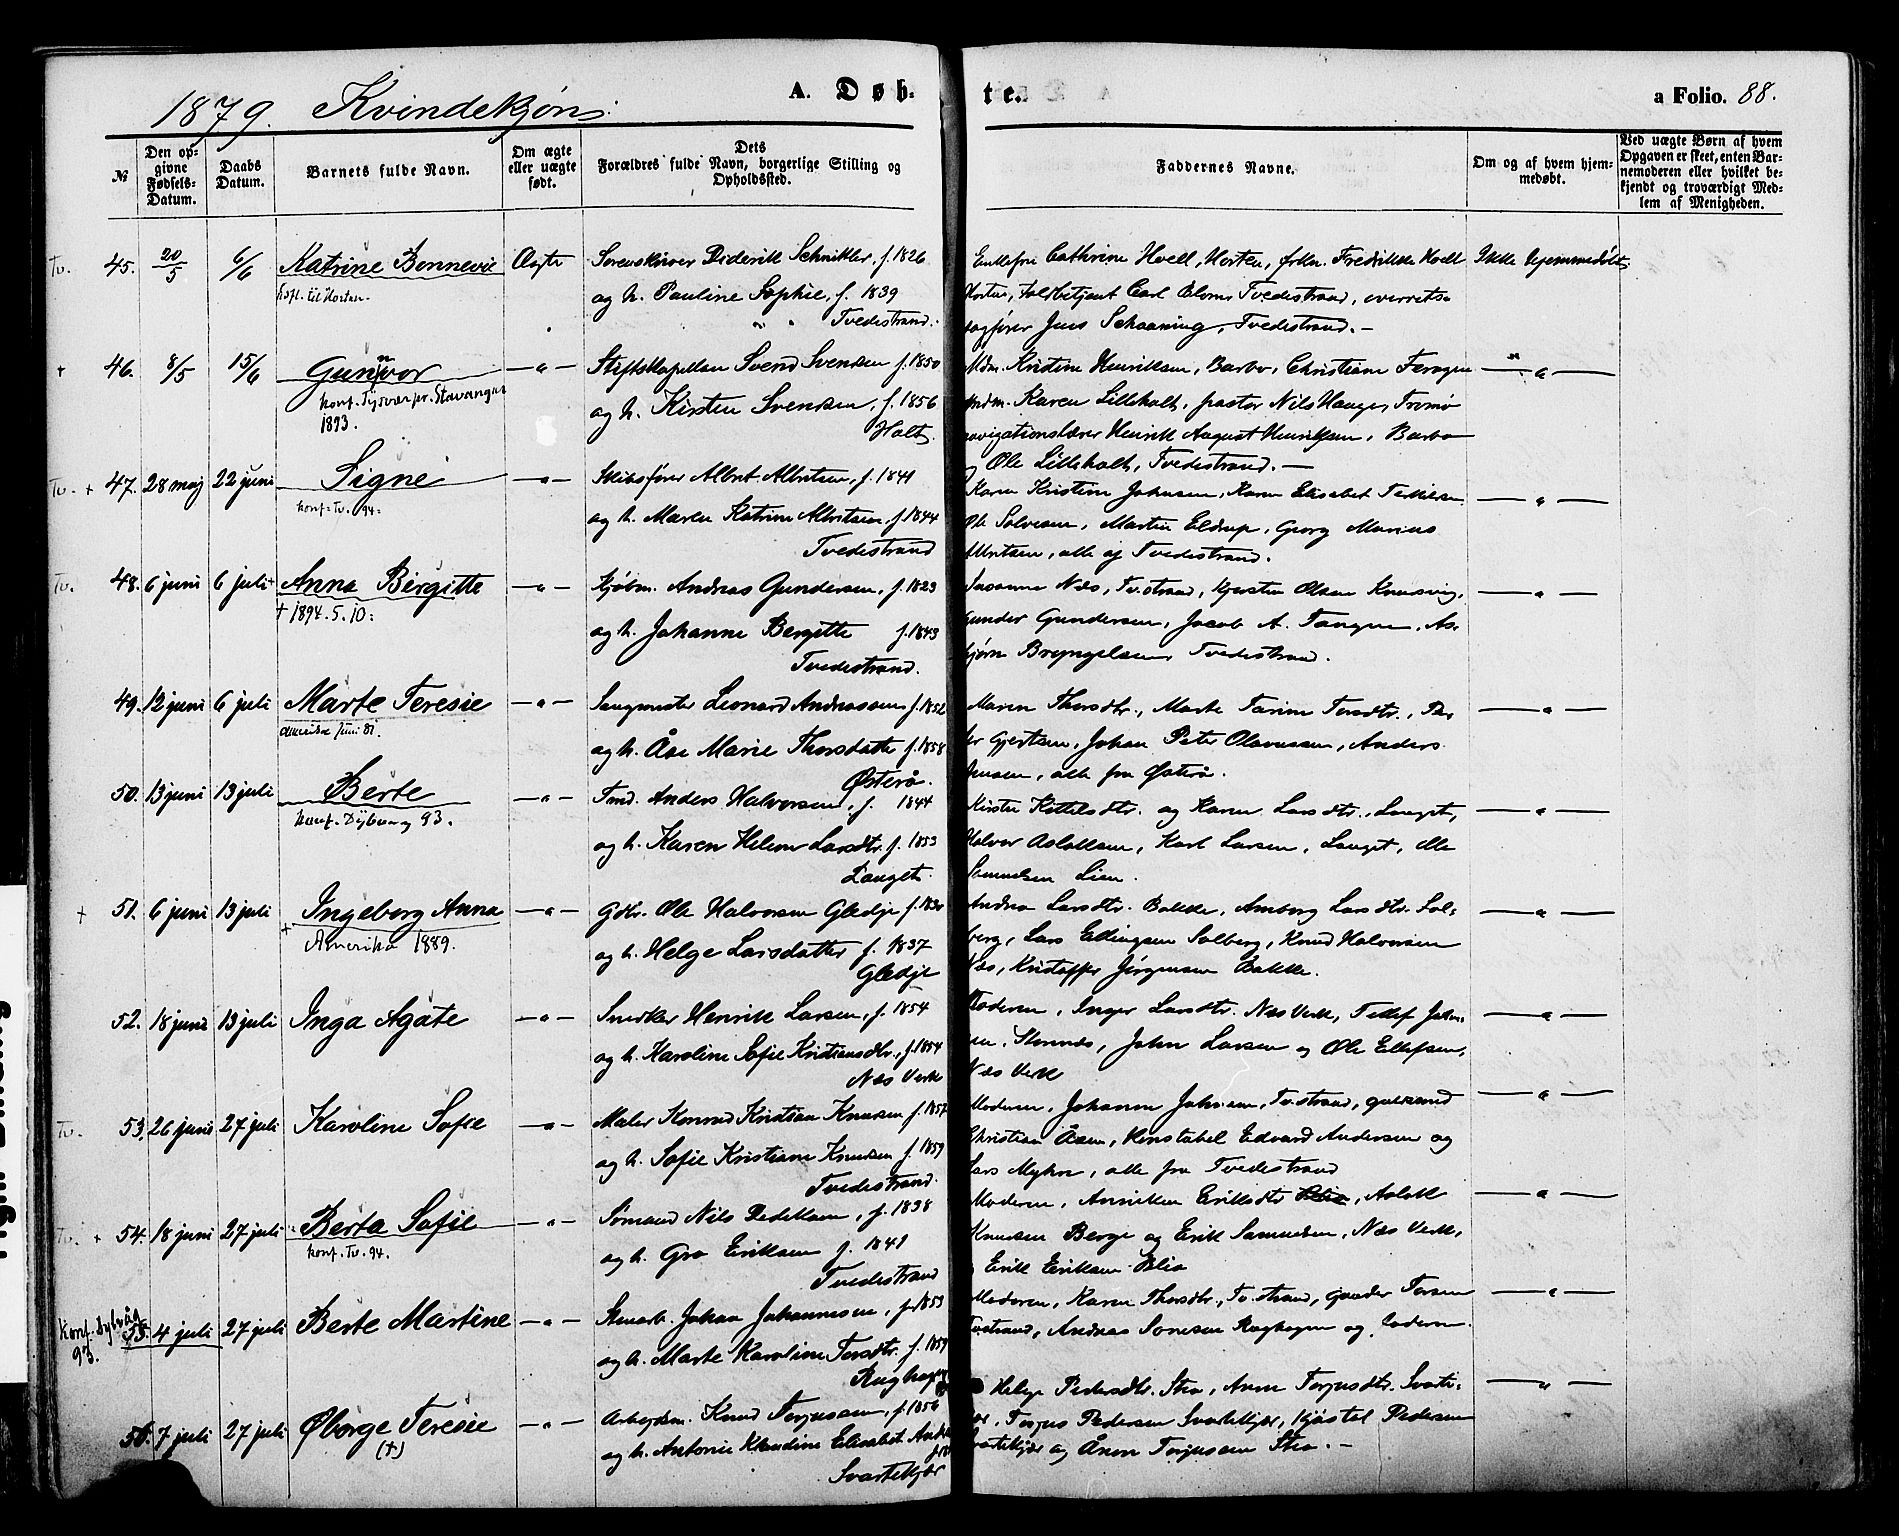 1879. Kvindekjøn.
A. Døbte.
a Folio. 88.
№
Den opgivne Fødsels-Datum.
Daabs Datum.
Barnets fulde Navn.
Om ægte eller uægte født.
Dets Forældres fulde Navn, borgerlige Stilling og Opholdssted.
Faddernes Navne.
Om og af hvem hjemmedøbt.
Ved uægte Børn af hvem Opgaven er skeet, enten Barnemoderen eller hvilket bekjendt og troværdigt Medlem af Menigheden.
Tv. 45. 20/5 6/6 Katrine Bonnevie Ægte Sorenskriver Diderik Schnitler, f. 1826
og h. Pauline Sophie, f. 1839
Tvedestrand.
Enkefru Cathrine Hoell, Horten, frkn. Fredrikke Hoell
Horten, Toldbetjent Carl Blom, Tvedestrand, overrets-
sagfører Jens Schaaning, Tvedestrand. –
Ikke hjemmedøbt
+ 46. 8/5 15/6 Gunnvor – " – Stiftskapellan Svend Svendsen f. 1850
konf. Tysvær pr. Stavanger
1893.
og h. Kirsten Svendsen, f. 1856
Holt.
Mdm. Kristine Henriksen, Barbo, Christiane
mdm. Karen Lilleholt, pastor Nils Hauge, Tromø
navigationslærer Henrik August Henriksen, Barbo
og Ole Lilleholt, Tvedestrand. –
– " –
Tv. + 47. 28 maj 22 juni Signe – " – Skibsfører Albret Albretsen, f. 1841
konf. Tv. 94.
og h. Maren Katrine Albretsen, f. 1844
Tvedestrand
Karen Kristine Johnsen, Karen Elisabet Terkilsen
Ole Solvesen, Martin Eldrup, Georg Marius
Albretsen, alle af Tvedestrand.
– " –
Tv. 48. 6 juni 6 juli + Anna Birgitte – " – Kjøbm. Andreas Gundersen, f. 1823
+ 1894. 5. 10.
og h. Johanne Bergitte f. 1843
Tvedestrand.
Susanne Næs, Tv.strand, Kjersten Olsen
Gunder Gundersen, Jacob A. Tangen, As-
bjørn Bryngelsen, Tvedestrand.
– " –
49. 12 juni 6 juli Marte Teresie – " – Saugmester Leonard Andreassen f. 1852
Amerika juni 81.
og h. Åse Marie Thorsdatter f. 1858
Østerå.
Maren Thorsdtr., Marte Tarine Torsdtr.,
Gjertsen, Johan Peter Olavessen, Anders
Jensen, alle fra Østerå.
– " –
50. 13 juni 13 juli Berte – " – Tmd. Anders Halvorsen, f. 1844
konf. Dybvaag 93.
og h. Karen Helene Larsdtr. f. 1853
Langet.
Kirsten Kittelsdtr. og Karen Larsdtr., Langet,
Halvor Aslaksen, Karl Larsen, Langet, Ole
Samuelsen Lien.
– " –
+ 51. 6 juni 13 juli Ingeborg Anna – " – Gbr. Ole Halvorsen Gledje
+ Amerika 1889.
og h. Helge Larsdatter f. 1837
Gledje
Andrea Larsdtr. Bakke, Amborg Larsdtr. Sol-
berg, Lars Ellingsen Solberg, Knud Halvorsen
Næs, Kristoffer Jørgensen Bakke.
– " –
52. 18 juni 13 juli Inga Agate – " – Snedker Henrik Larsen, f. 1854
og h. Karoline Sofie Kristiansdtr., f. 1854
Næs Verk
Moderen, Inger Larsdtr. Næs Verk, Tellef John-
sen, John Larsen og Ole Ellefsen,
Næs Verk
– " –
Tv. 53. 26 juni 27 juli Karoline Sofie – " – Maler Konrad Kristian Knudsen f. 1857
og h. Sofie Kristiane Knudsen f. 1859
Tvedestrand.
Moderen, Johanne Johnsen, Tv.strand,
Christian Åsen, Konstabel Edvard Andersen og
Lars Myhre, alle fra Tvedestrand
– " –
Tv. + 54. 18 juni 27 juli Berta Sofie – " – Sømand Nils f. 1838
konf. Tv. 94.
og h. Gro Eriksen f. 1841
Tvedestrand
Moderen, Anniken Eriksdtr, Aslak
Knudsen Berge og Erik Samuelsen, Næs Verk,
og Erik Eriksen Blia
– " –
Konf. Dybvåg 93. 55. 4 juli 27 juli Berte Martine – " – Stenarb. Johan Johannesen, f. 1853
og h. Marte Karoline Torsdtr. f. 1859
Rughagen
Moderen, Karen Thorsdtr., Tv.strand, Gunder Torsen
Tv.strand, Andreas Sørensen Rughagen og Faderen.
– " –
56. 7 juli 27 juli Øborge Teresie – " – Arbejdsm. Knud Torjussen, f. 1856
(+)
og h. Antonie Klaudine Elisabet
Svartekjær
Helge Pedersdtr. Stea, Anne Torjusdtr. Svarte-
kjær, Torjus Pedersen Svartekjær, Kjøstel Pedersen
Svartekjær og Ånon Torjussen Stea. –
– " –